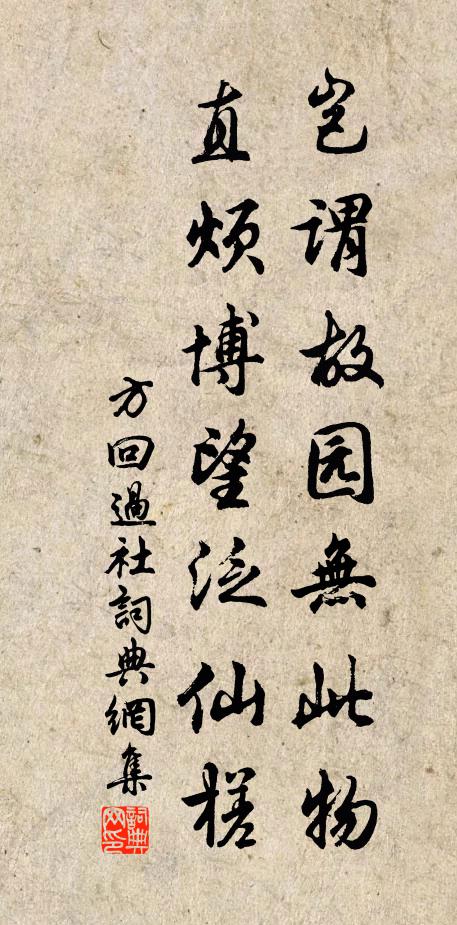 岂谓故园無此物
直烦博望泛仙槎
方回過社詞典網集
詞典網印